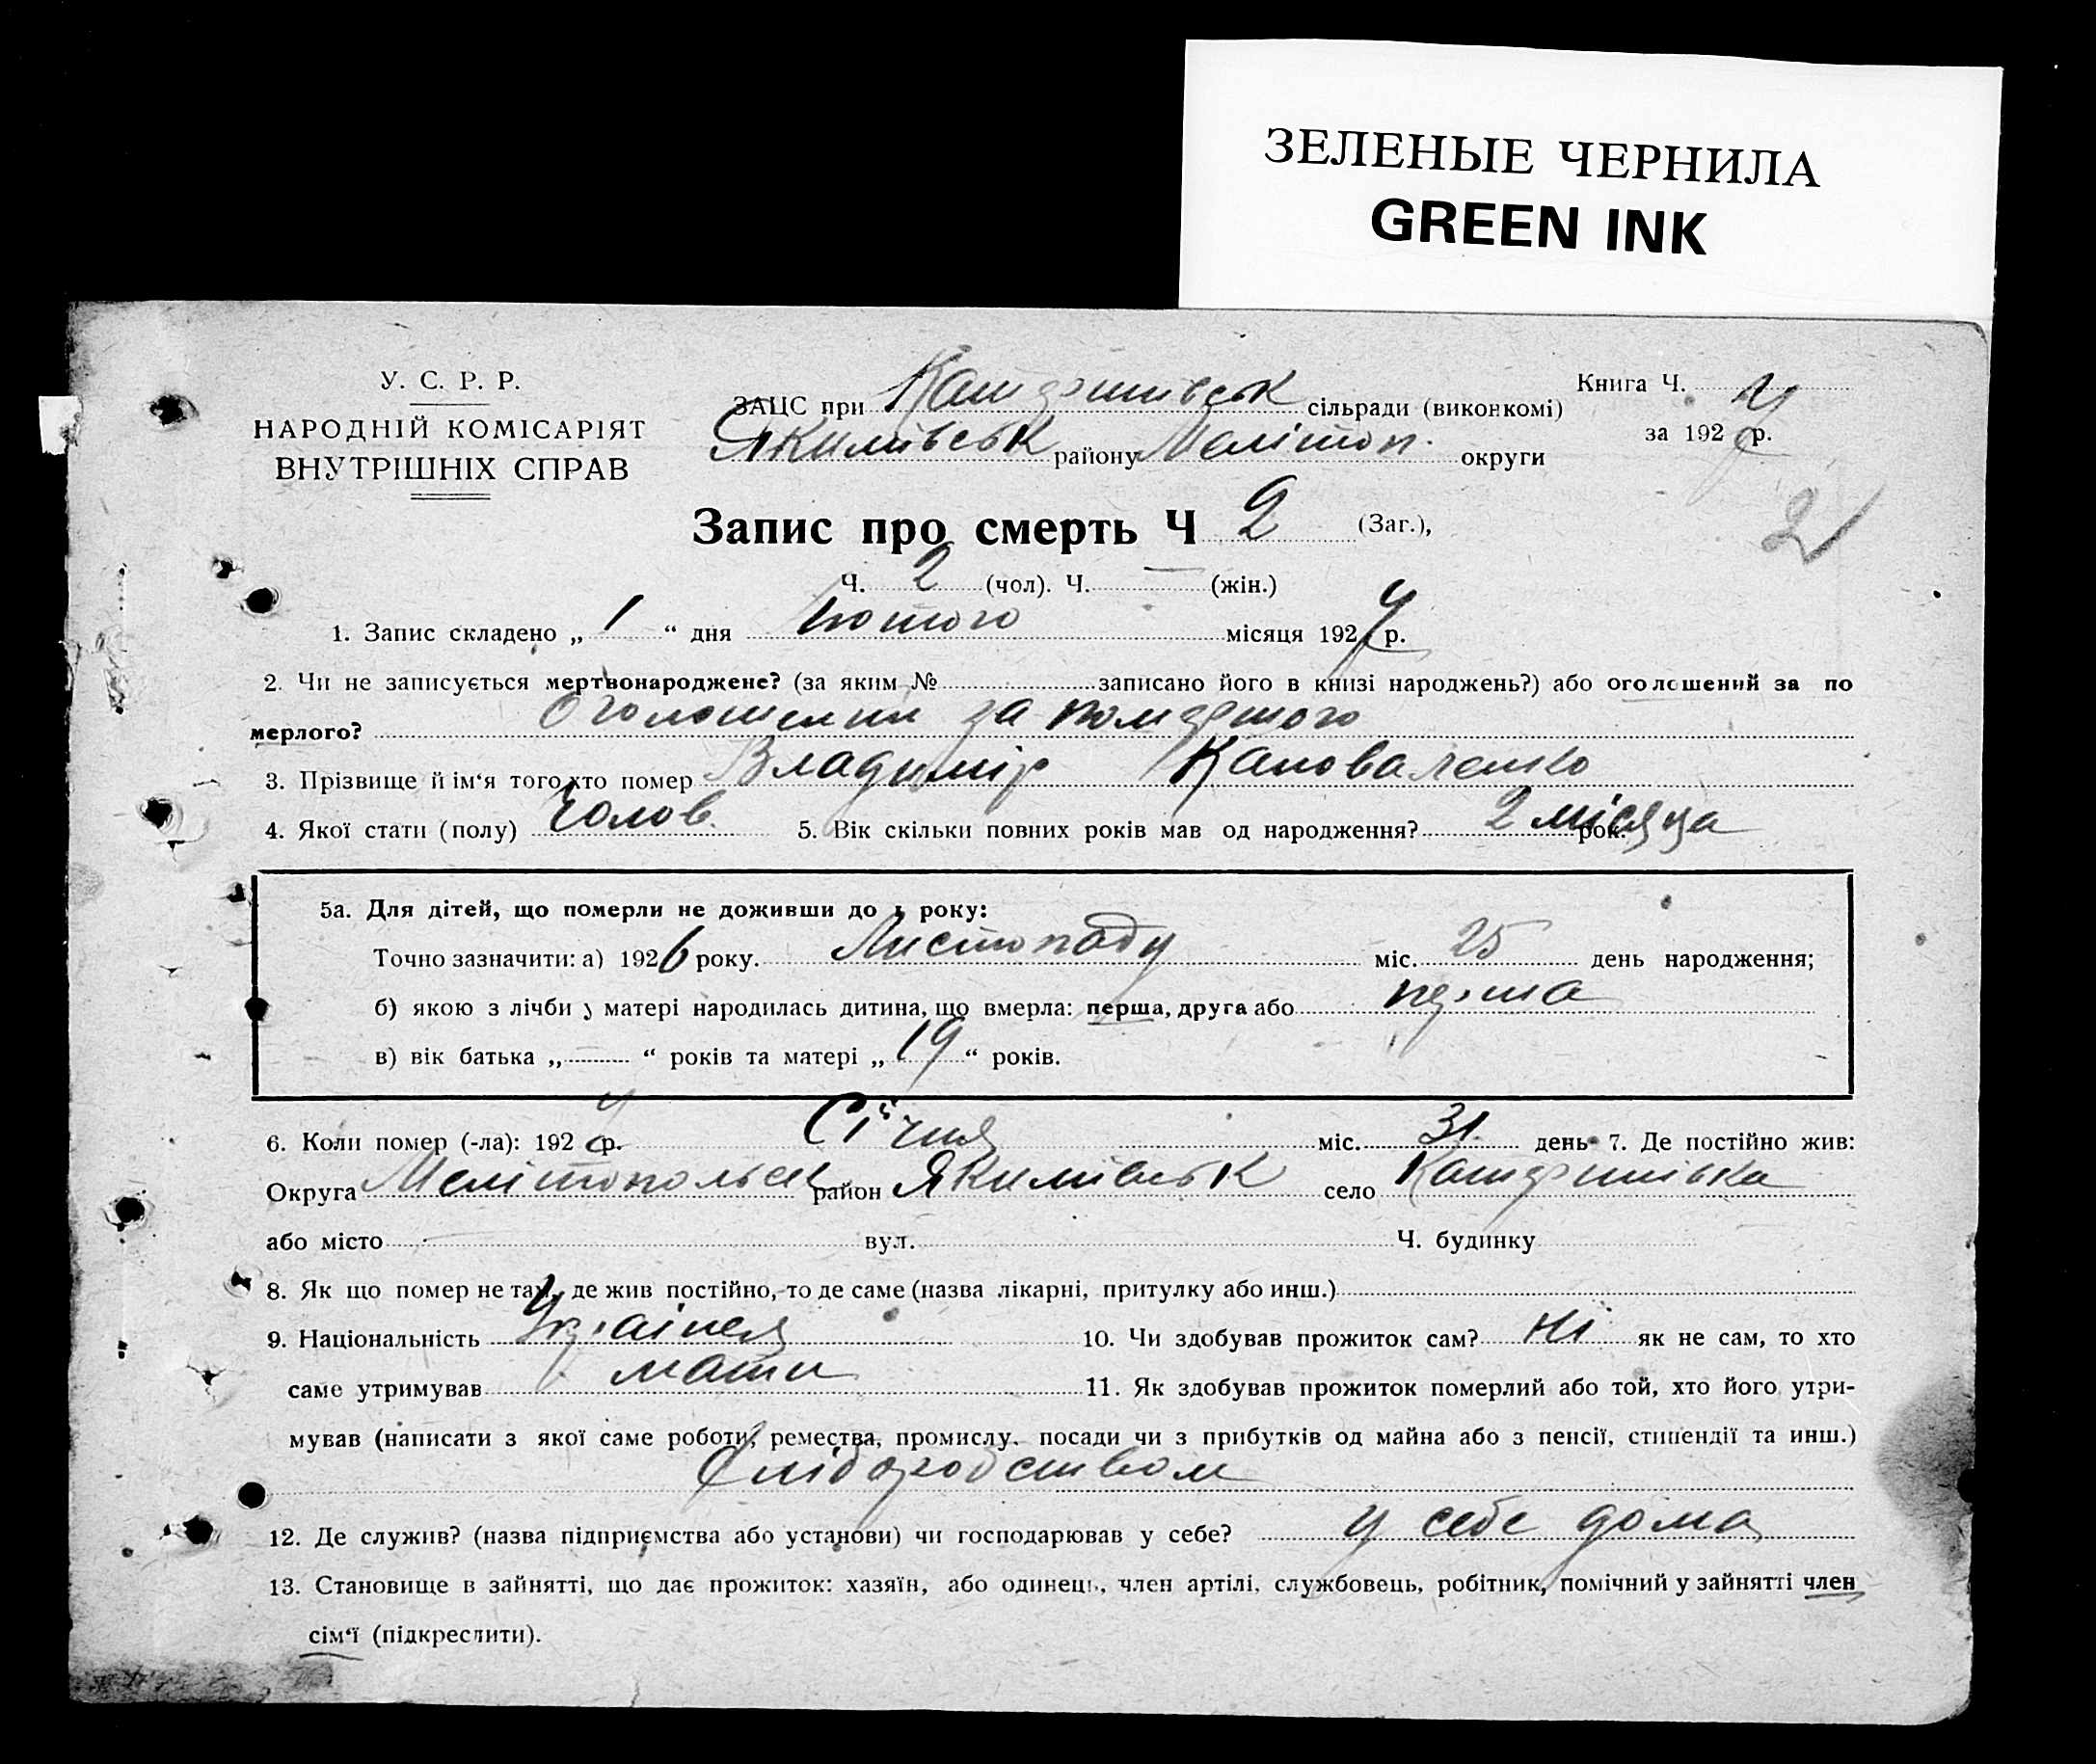 ЗЕЛЕНЫЕ ЧЕРНИЛА
GREEN INK
У. С. Р. Р.
НАРОДНІЙ КОМІСАРІЯТ
ВНУТРІШНІХ СПРАВ
Книга Ч.
ЗАЦС при сільради (виконкомі)
за 1927 р.
Якимівськ району Мелітоп. округи
2
Запис про смерть Ч 2 (Заг.),
Ч. 2 (чол). Ч. — (жін.)
1. Запис складено „ 1 “ дня лютого місяця 1927 р.
2. Чи не записується мертвонароджене? (за яким № записано його в книзі народжень?) або оголошений за по
мерлого? Оголошений за помершого
3. Прізвище й ім‘я того хто помер Владимір Коноваленко
4. Якої стати (полу) Чолов. 5. Вік скільки повних років мав од народження? 2 місяца рок.
5а. Для дітей, що померли не доживши до 1 року:
Точно зазначити: а) 1926 року. Листопаду міс. 25 день народження;
б) якою з лічби у матері народилась дитина, що вмерла: перша, друга або перша
в) вік батька „ “ років та матері „ 19 “ років.
6. Коли помер (-ла): 1927 р. Січня міс. 31 день 7. Де постійно жив:
Округа Мелітопольськ район Якимівськ село
або місто вул. Ч. будинку
8. Як що помер не там, де жив постійно, то де саме (назва лікарні, притулку або инш.)
9. Національність 10. Чи здобував прожиток сам? Ні як не сам, то хто
саме утримував мати 11. Як здобував прожиток померлий або той, хто його утри-
мував (написати з якої саме роботи, ремества, промислу, посади чи з прибутків од майна або з пенсії, стипендії та инш.)
Хліборобством
12. Де служив? (назва підприємства або установи) чи господарював у себе? у себе дома
13. Становище в зайнятті, що дає прожиток: хазяїн, або одинець, член артілі, службовець, робітник, помічний у зайнятті член
сім‘ї (підкреслити).